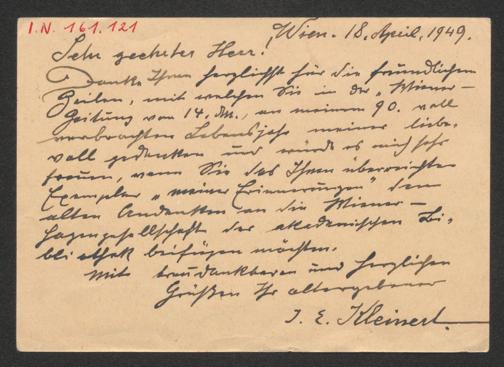 I.N. 161.121
Wien. 18. April, 1949.
Sehr geehrter Herr!
Danke Ihnen herzlichst für die freundlichen
Zeilen, mit welchen Sie in der „Wiener-
Zeitung vom 14. ds., an meinem 90. voll
verbrachten Lebensjahr meiner liebe-
voll gedenken und würde es mich sehr
freuen, wenn Sie das Ihnen überreichte
Exemplar „meiner Erinnerungen" dem
alten Andenken an die Wiener-
gesellschaft der akademischen Bi-
bliothek beifügen möchten.
Mit treudankbaren und herzlichen
Grüßen Ihr altergebener
J. E. Kleinert.